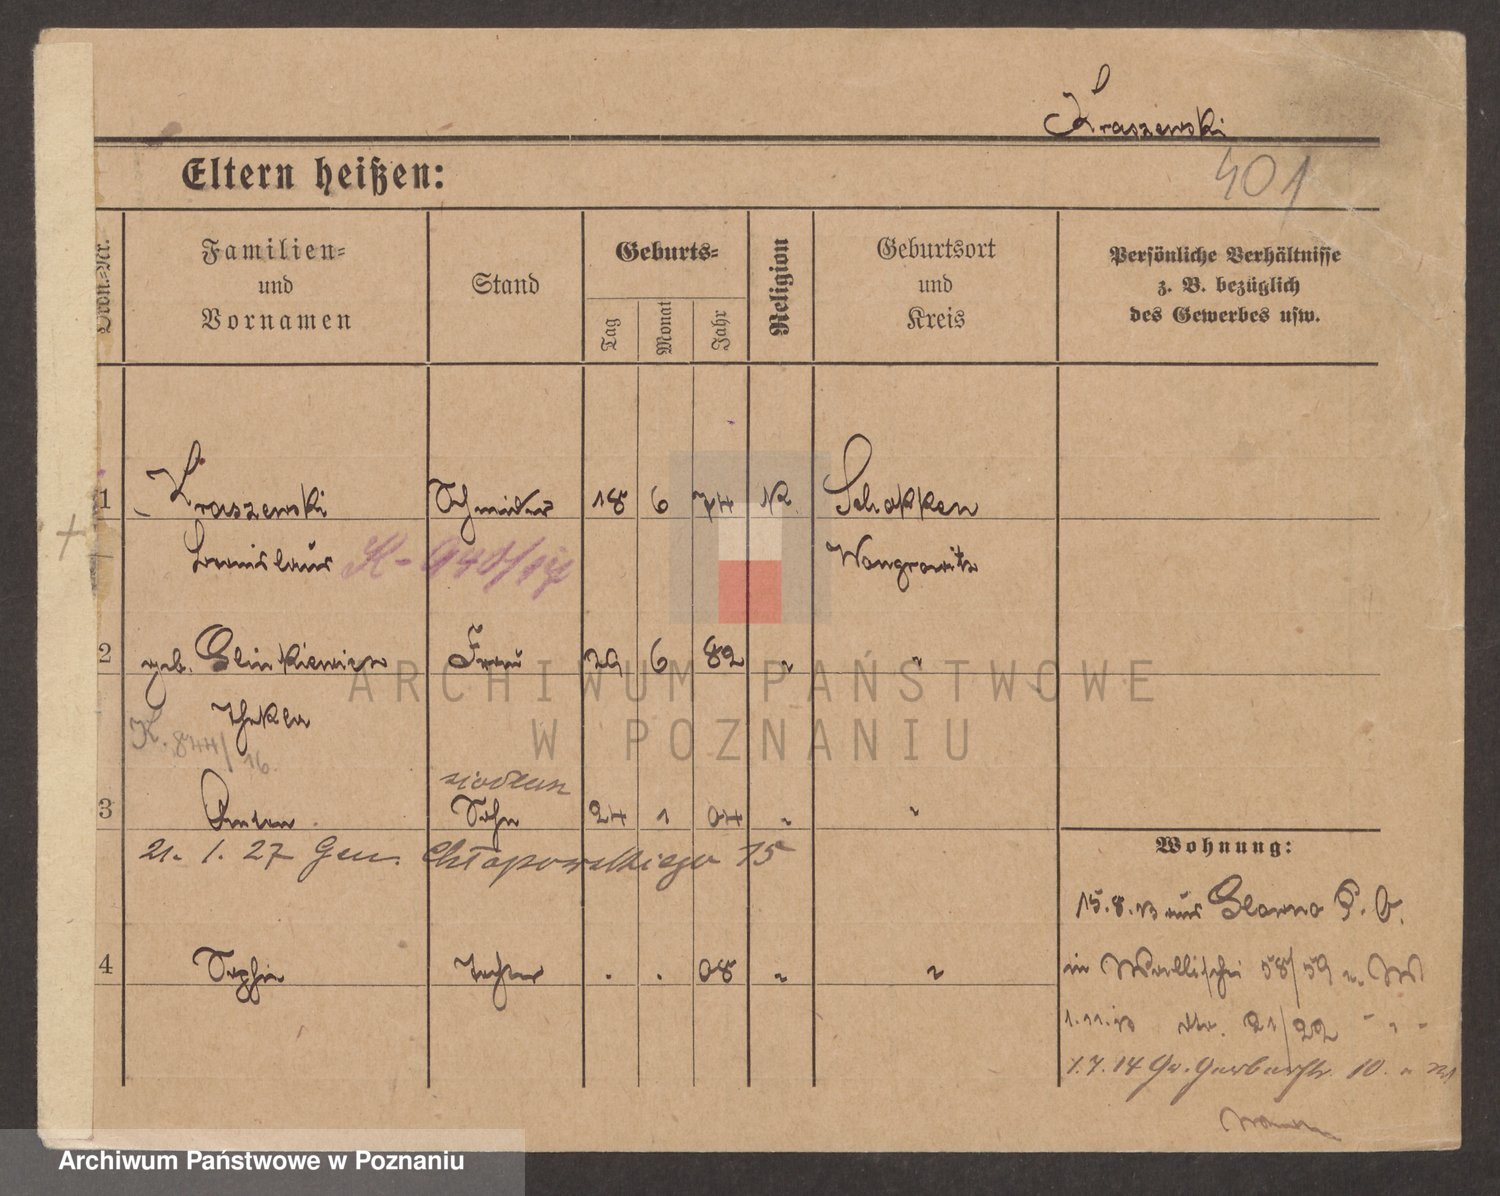 Kraszewski
401
Eltern heißen:
Ordn.-Nr.
Familien-
und
Vornamen
Stand
Geburts-
Tag
Monat
Jahr
Religion
Geburtsort
und
Kreis
Persönliche Verhältnisse
z. B. bezüglich
des Gewerbes usw.
1 Kraszewski Schneider 18 6 74 K. Schokken
Bronislaus K-940/17 Wongrowitz
2 geb. Glinkiewicz Frau 29 6 82 " "
Thekla
K. 844/16
siodlarz
3 Anton Sohn 24 1 04 " "
21. 1. 27 Gen. Chłapowskiego 15
Wohnung:
15.8.13 aus Glowno P. O.
4 Sophie Tochter . . 08 " "
in Wallischei 58/59
1.11.13 21/22 " " "
1.7.14 Gr. Gerberstr. 10.
ARCHIWUM PAŃSTWOWE
W POZNANIU
Archiwum Państwowe w Poznaniu